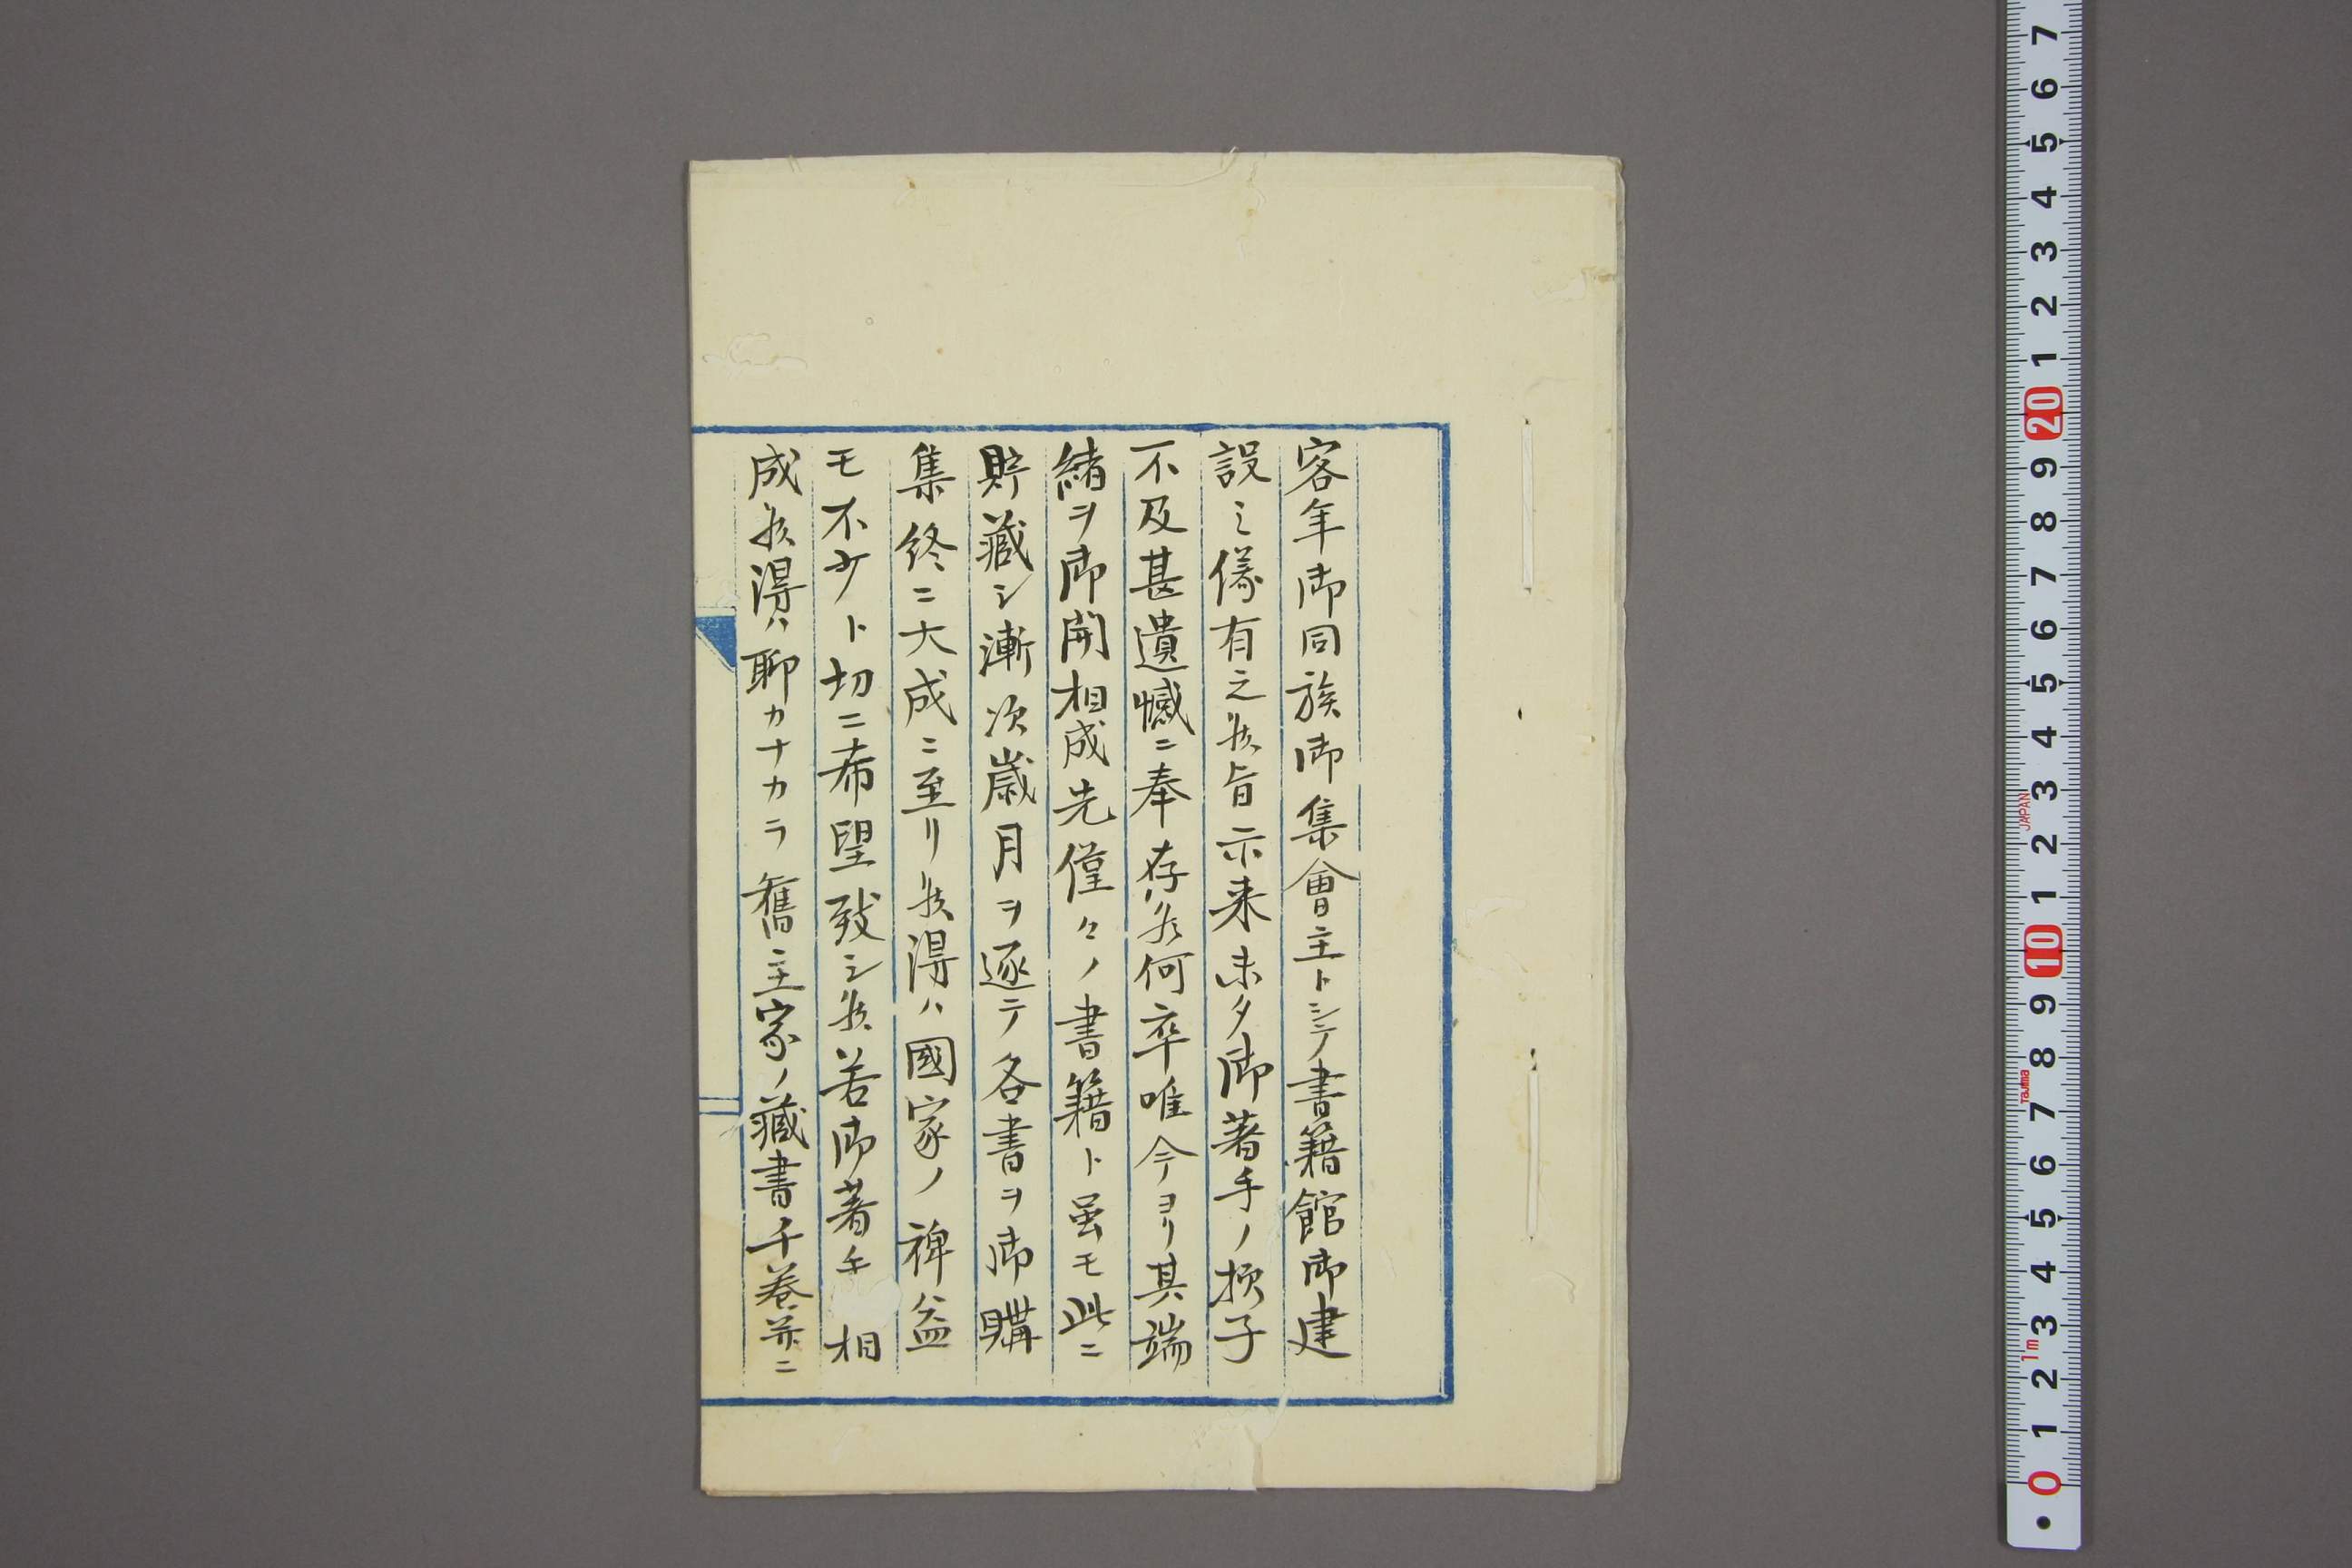 客年御同族御集會主トシテ書籍館御建
設之儀有之候旨示来未タ御著手ノ様子
不及甚遺憾ニ奉存候何卒唯今ヨリ其端
緒ヲ御開相成先僅々ノ書籍ト虽モ此ニ
貯藏シ漸次歳月ヲ逐テ各書ヲ御購
集終ニ大成ニ至リ候得ハ國家ノ裨益
モ不少ト切ニ希望致シ候若御著手相
成候得ハ聊カナカラ舊主家ノ藏書千巻并ニ
7
6
5
4
3
2
1
20
9
8
7
6
5
4
3
2
1
10
9
8
7
6
5
4
3
2
1
0
JAPAN
Tajima
1m